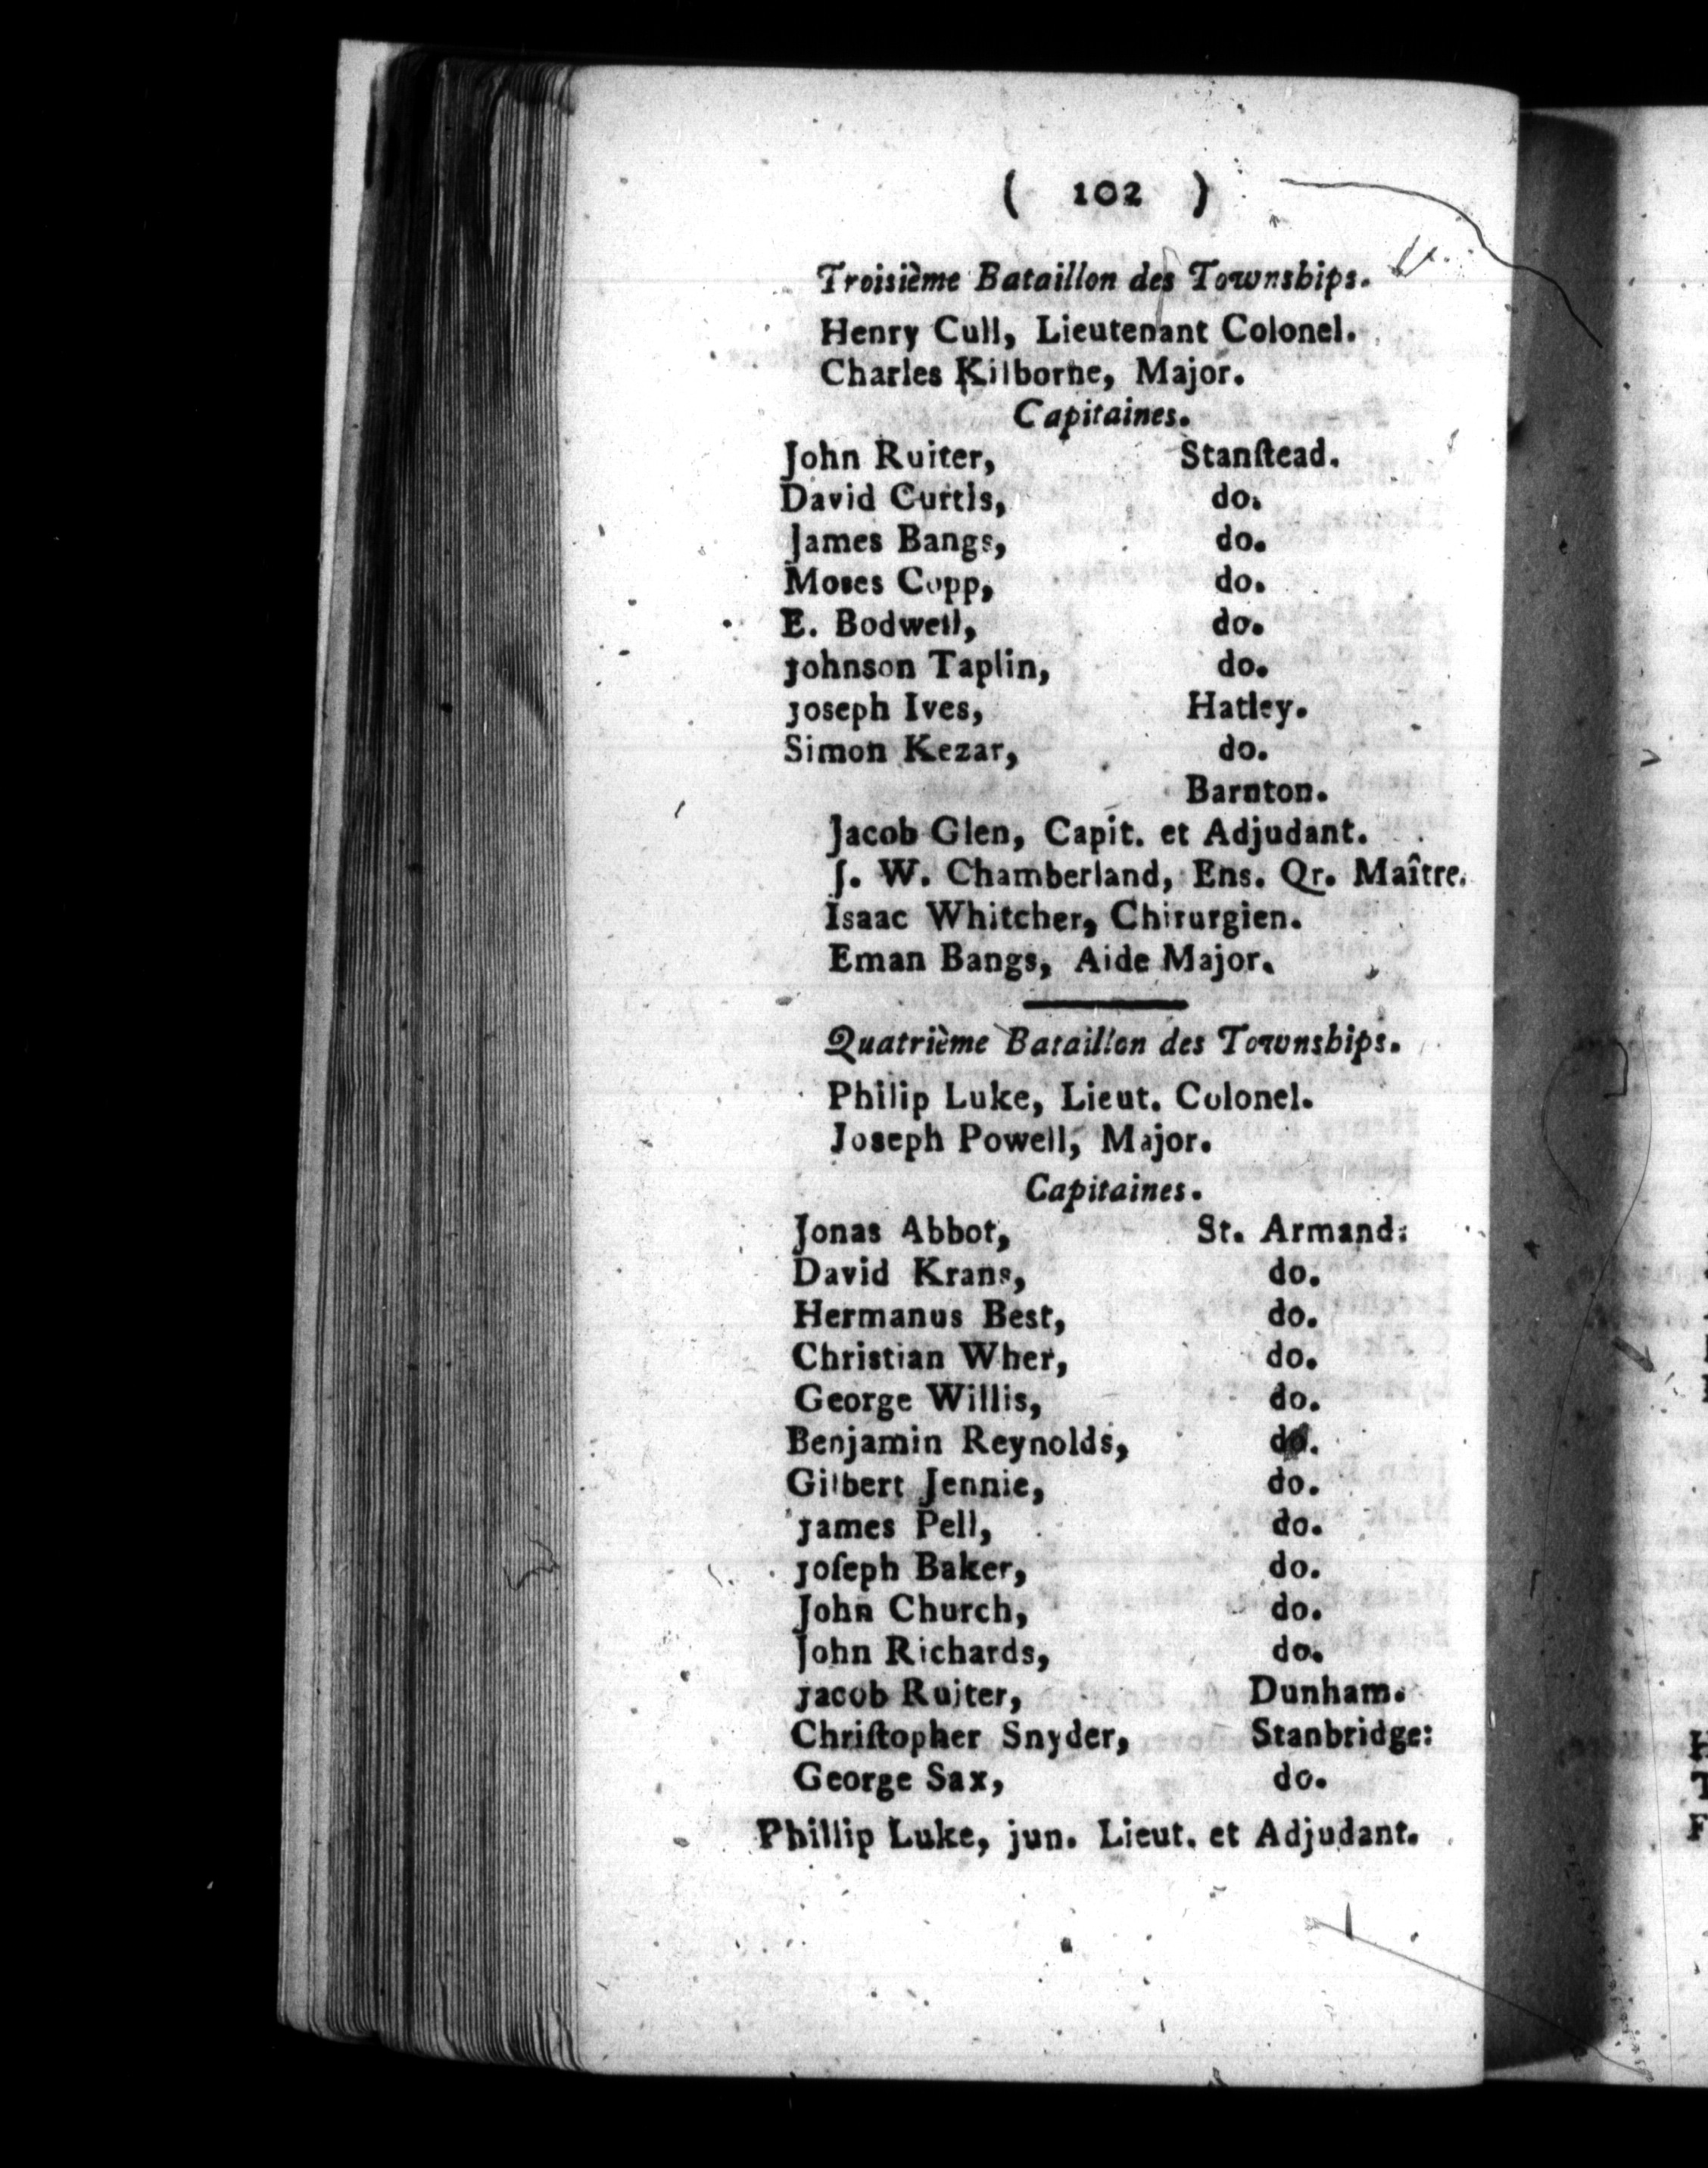 ( 102 )
Troisième Bataillon des Townships.
Henry Cull, Lieutenant Colonel.
Charles Kilborne, Major.
Capitaines.
John Ruiter, Stanſtead.
David Curtis, do.
James Bangs, do.
Moses Copp, do.
E. Bodwell, do.
Johnson Taplin, do.
Joseph Ives, Hatley.
Simon Kezar, do.
Barnton.
Jacob Glen, Capit. et Adjudant.
J. W. Chamberland, Ens. Qr. Maître.
Isaac Whitcher, Chirurgien.
Eman Bangs, Aide Major.
Quatrième Bataillon des Townships.
Philip Luke, Lieut. Colonel.
Joseph Powell, Major.
Capitaines.
Jonas Abbot, St. Armand:
David Krans, do.
Hermanus Best, do.
Christian Wher, do.
George Willis, do.
Benjamin Reynolds, do.
Gilbert Jennie, do.
James Pell, do.
Joſeph Baker, do.
John Church, do.
John Richards, do.
Jacob Ruiter, Dunham.
Chriſtopher Snyder, Stanbridge:
George Sax, do.
Phillip Luke, jun. Lieut. et Adjudant.